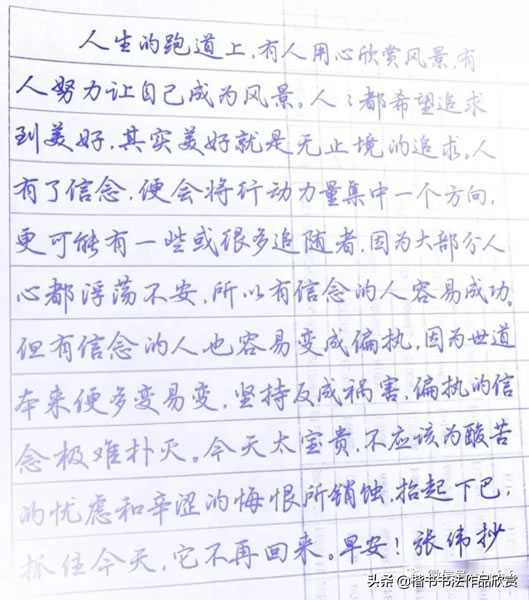 人生的跑道上,有人用心欣赏风景,有
人努力让自己成为风景。人々都希望追求
到美好,其实美好就是无止境的追求。人
有了信念,便会将行动力量集中一个方向,
更可能有一些或很多追随者,因为大部分人
心都浮荡不安,所以有信念的人容易成功。
但有信念的人也容易变成偏执,因为世道
本来便多变易变,坚持反成祸害,偏执的信
念极难扑灭。今天太宝贵,不应该为酸苦
的忧虑和辛涩的悔恨所销蚀,抬起下巴,
抓住今天,它不再回来。早安!张伟抄
头条@楷书书法作品欣赏